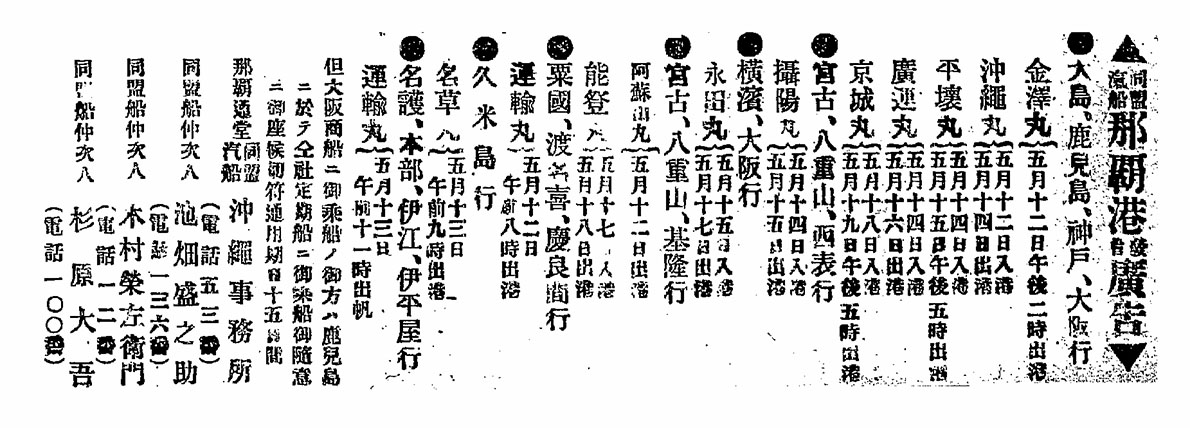 ▲同盟汽船那覇港發着廣告▼
●大島、鹿兒島、神戸、大阪行
金澤丸 五月十二日午後二時出港
沖繩丸 五月十二日入港 五月十四日出港
平壤丸 五月十四日入港 五月十五日午後五時出港
廣運丸 五月十四日入港 五月十六日出港
京城丸 五月十八日入港 五月十九日午後五時出港
●宮古、八重山、西表行
攝陽丸 五月十四日入港 五月十五日出港
●橫濱、大阪行
永田丸 五月十五日入港 五月十七日出港
●宮古、八重山、基隆行
阿蘇山丸 五月十二日出港
能登丸 五月十七日入港 五月十八日出港
●粟國、渡名喜、慶良間行
運輸丸 五月十二日 午前八時出港
●久米島行
名草丸 五月十三日 午前九時出港
●名護、本部、伊江、伊平屋行
運輸丸 五月十三日 午前十一時出帆
但大阪商船ニ御乘船ノ御方ハ鹿兒島
ニ於テ仝社定期船ニ御乘船御隨意
ニ御座候切符通用期日十五日間
那覇通堂 同盟汽船 沖繩事務所
(電話五三番)
同盟船仲次人 池畑盛之助
(電話一三六番)
同盟船仲次人 木村榮左衛門
(電話一一二番)
同盟船仲次人 杉原大吾
(電話一〇〇番)